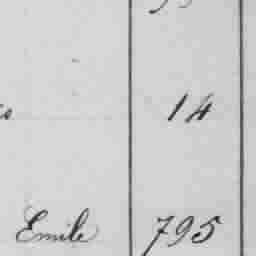 14
Emile 795